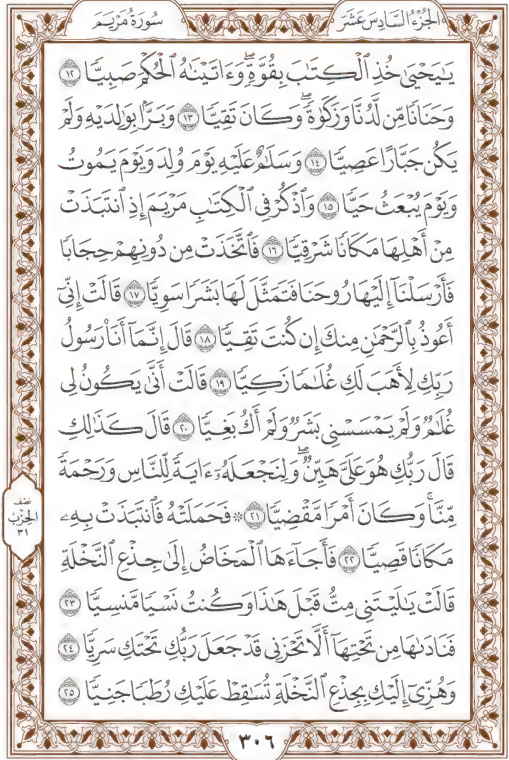 الجُزْءُ السَّادِسَ عَشَرَ
سُورَةُ مَرْيَمَ
يَٰيَحْيَىٰ خُذِ ٱلْكِتَٰبَ بِقُوَّةٍۖ وَءَاتَيْنَٰهُ ٱلْحُكْمَ صَبِيًّا ١٢
وَحَنَانًا مِّن لَّدُنَّا وَزَكَوٰةًۖ وَكَانَ تَقِيًّا ١٣ وَبَرًّۢا بِوَٰلِدَيْهِ وَلَمْ
يَكُن جَبَّارًا عَصِيًّا ١٤ وَسَلَٰمٌ عَلَيْهِ يَوْمَ وُلِدَ وَيَوْمَ يَمُوتُ
وَيَوْمَ يُبْعَثُ حَيًّا ١٥ وَٱذْكُرْ فِى ٱلْكِتَٰبِ مَرْيَمَ إِذِ ٱنتَبَذَتْ
مِنْ أَهْلِهَا مَكَانًا شَرْقِيًّا ١٦ فَٱتَّخَذَتْ مِن دُونِهِمْ حِجَابًا
فَأَرْسَلْنَآ إِلَيْهَا رُوحَنَا فَتَمَثَّلَ لَهَا بَشَرًا سَوِيًّا ١٧ قَالَتْ إِنِّىٓ
أَعُوذُ بِٱلرَّحْمَٰنِ مِنكَ إِن كُنتَ تَقِيًّا ١٨ قَالَ إِنَّمَآ أَنَا۠ رَسُولُ
رَبِّكِ لِأَهَبَ لَكِ غُلَٰمًا زَكِيًّا ١٩ قَالَتْ أَنَّىٰ يَكُونُ لِى
غُلَٰمٌ وَلَمْ يَمْسَسْنِى بَشَرٌ وَلَمْ أَكُ بَغِيًّا ٢٠ قَالَ كَذَٰلِكِ
قَالَ رَبُّكِ هُوَ عَلَىَّ هَيِّنٌۖ وَلِنَجْعَلَهُۥٓ ءَايَةً لِّلنَّاسِ وَرَحْمَةً
مِّنَّاۚ وَكَانَ أَمْرًا مَّقْضِيًّا ٢١ ۞ فَحَمَلَتْهُ فَٱنتَبَذَتْ بِهِۦ
مَكَانًا قَصِيًّا ٢٢ فَأَجَآءَهَا ٱلْمَخَاضُ إِلَىٰ جِذْعِ ٱلنَّخْلَةِ
قَالَتْ يَٰلَيْتَنِى مِتُّ قَبْلَ هَٰذَا وَكُنتُ نَسْيًا مَّنسِيًّا ٢٣
فَنَادَىٰهَا مِن تَحْتِهَآ أَلَّا تَحْزَنِى قَدْ جَعَلَ رَبُّكِ تَحْتَكِ سَرِيًّا ٢٤
وَهُزِّىٓ إِلَيْكِ بِجِذْعِ ٱلنَّخْلَةِ تُسَٰقِطْ عَلَيْكِ رُطَبًا جَنِيًّا ٢٥
نصف
الحزب
٣١
٣٠٦